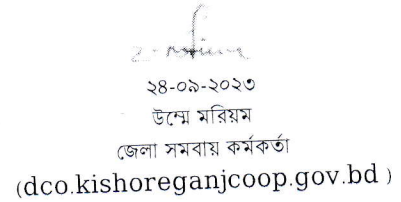 ২৪-০৯-২০২৩
উম্মে মরিয়ম
জেলা সমবায় কর্মকর্তা
(dco.kishoreganjcoop.gov.bd )